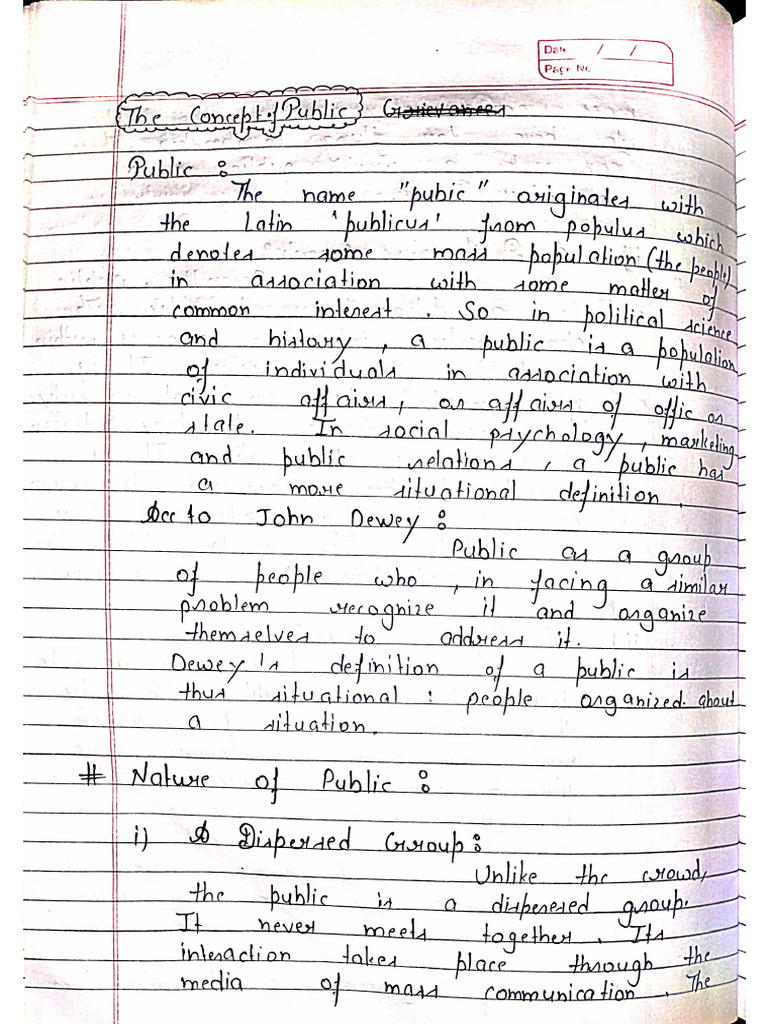 Date / /
Page No
The Concept of Public Grievances
Public :
The name "pubic" originates with
the Latin 'publicus' from populus which
denotes some mass population (the people)
in association with some matter of
common interest. So in political science
and history, a public is a population
of individuals in association with
civic affairs, or affairs of offic or
state. In social psychology, marketing
and public relations, a public has
a more situational definition.
Acc to John Dewey :
Public as a group
of people who, in facing a similar
problem recognize it and organize
themselves to address it.
Dewey's definition of a public is
thus situational : people organized about
a situation.
# Nature of Public :
i) A Dispersed Group :
Unlike the crowd,
the public is a dispersed group.
It never meets together. Its
interaction takes place through the
media of mass communication. The